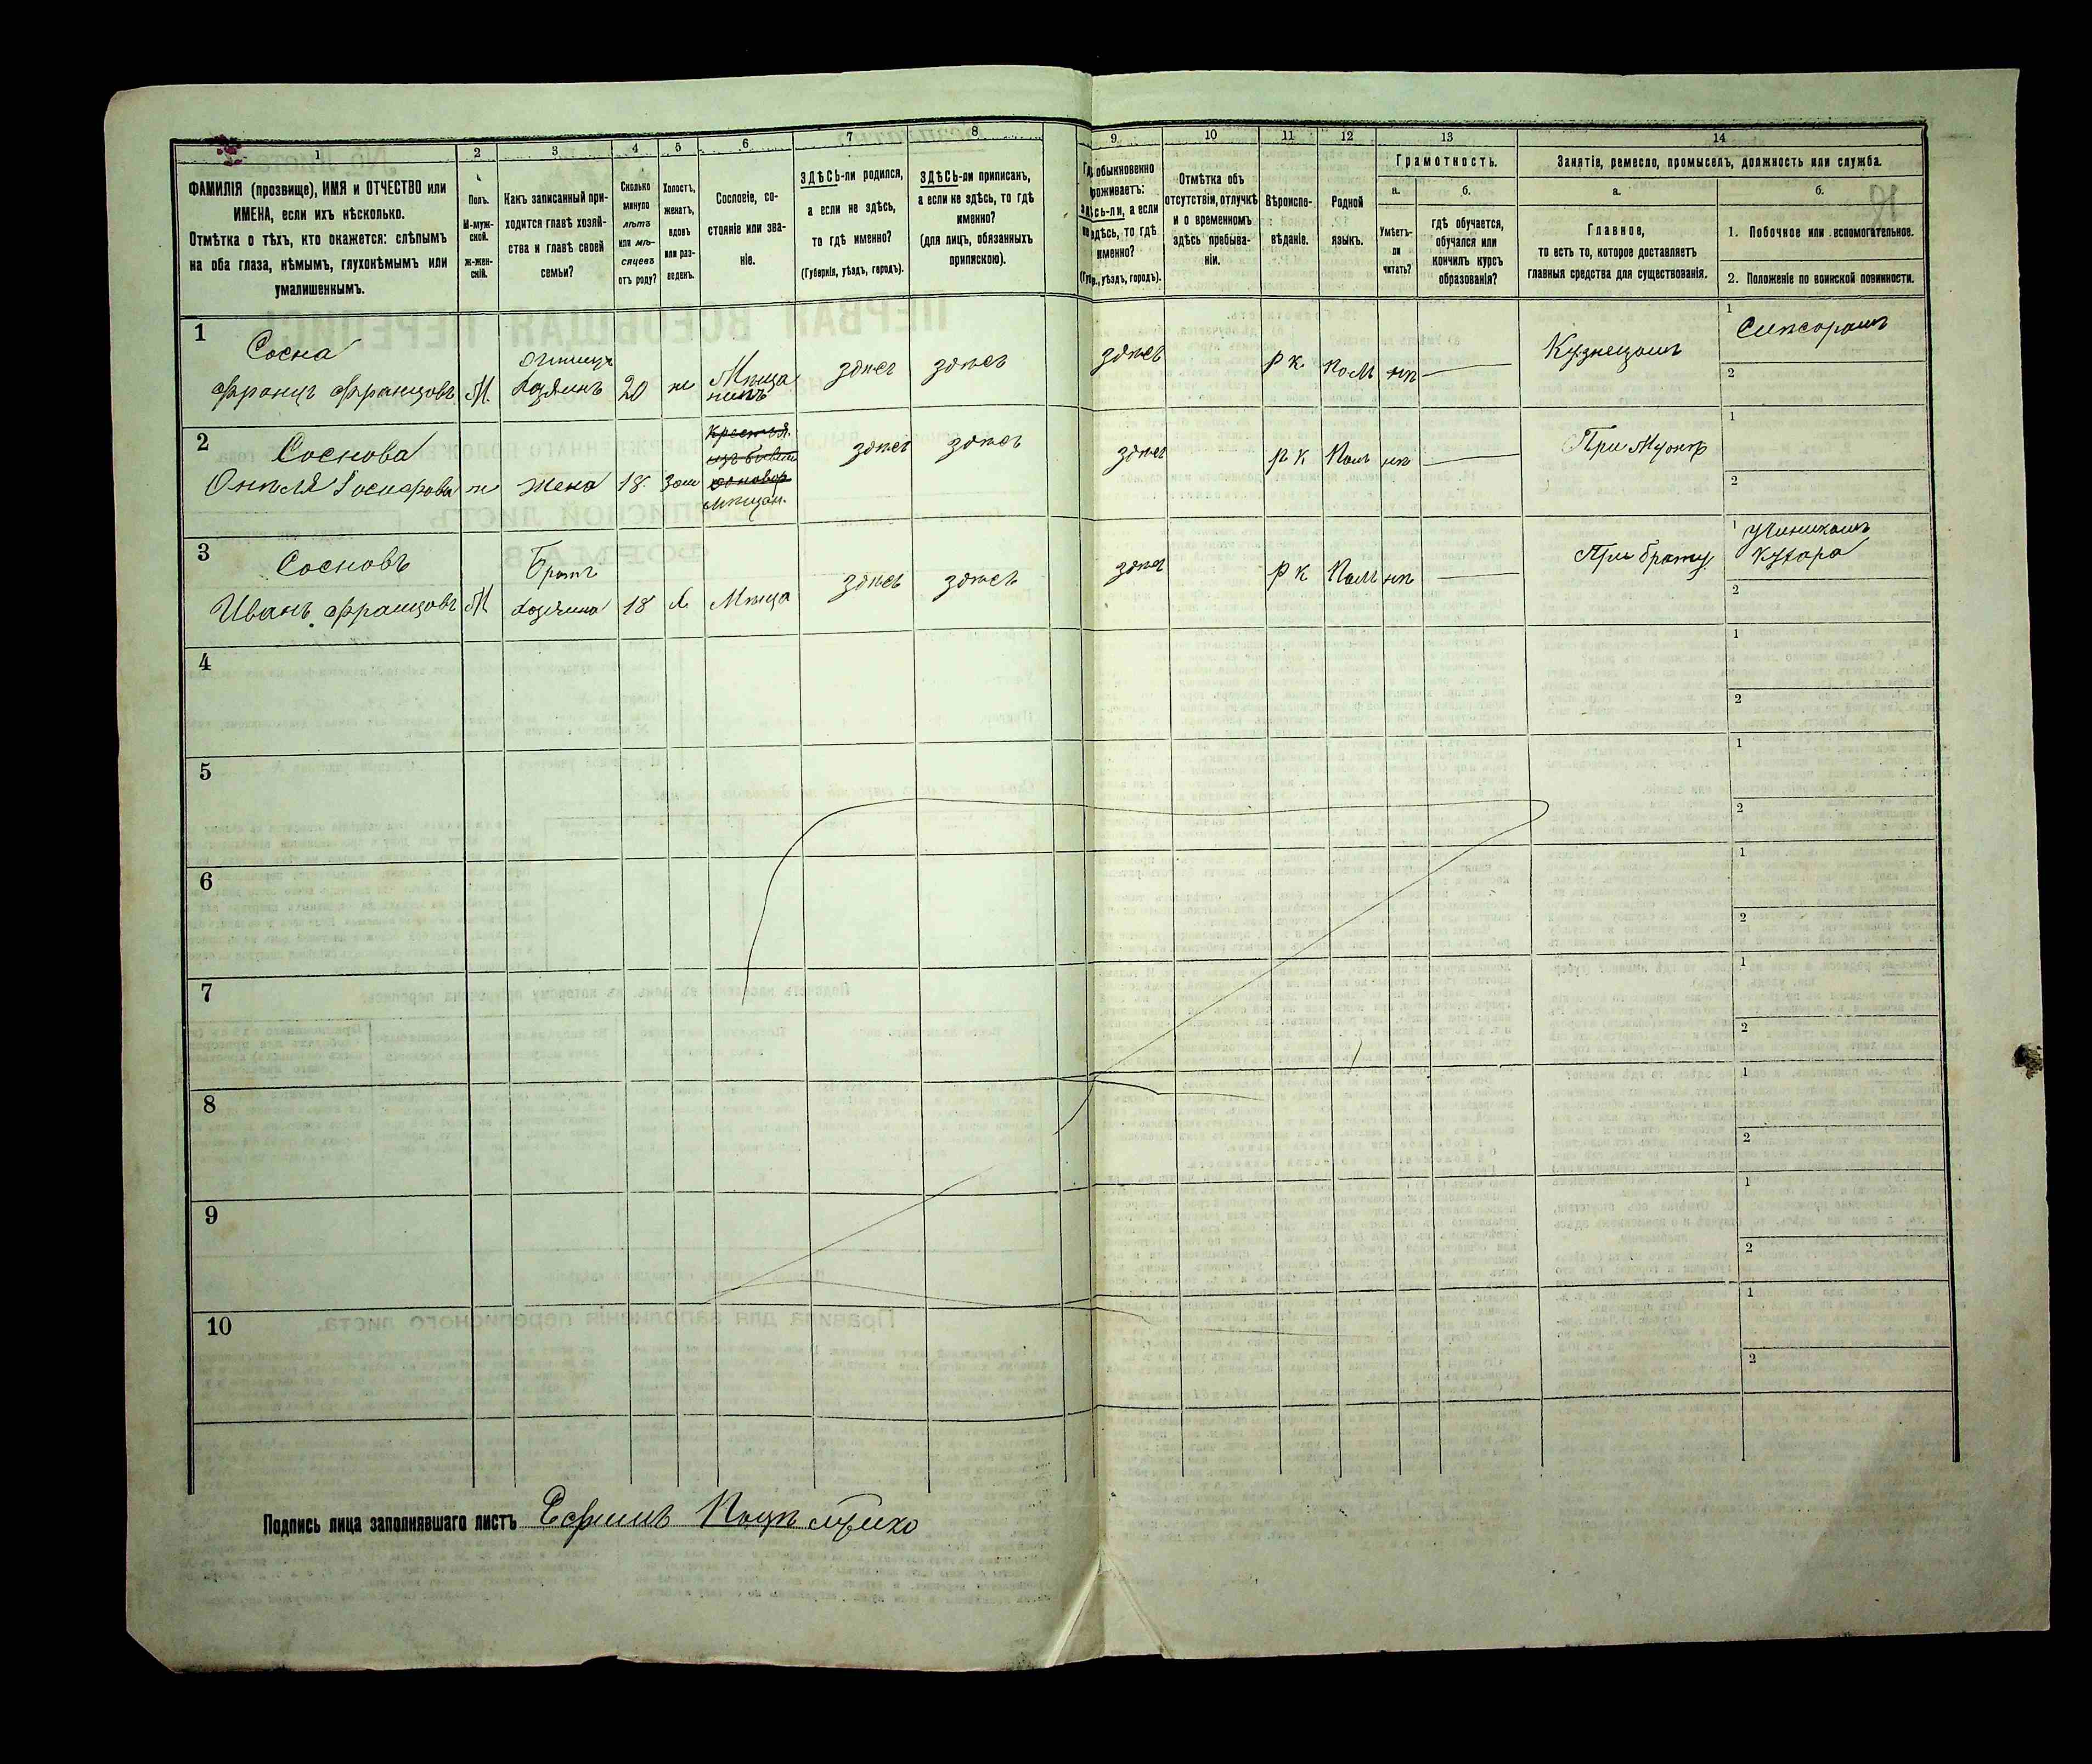 1 2 3 4 5 6 7 8 9 10 11 12 13 14
ФАМИЛІЯ (прозвище), ИМЯ и ОТЧЕСТВО или
ИМЕНА, если ихъ нѣсколько.
Отмѣтка о тѣхъ, кто окажется: слѣпымъ
на оба глаза, нѣмымъ, глухонѣмымъ или
умалишеннымъ.
Полъ.
М-муж-
ской.
ж-жен-
скій.
Какъ записанный при-
ходится главѣ хозяй-
ства и главѣ своей
семьи?
Сколько
минуло
лѣтъ
или мѣ-
сяцевъ
отъ роду?
Холостъ,
женатъ,
вдовъ
или раз-
веденъ.
Сословіе, со-
стояніе или зва-
ніе.
ЗДѢСЬ-ли родился,
а если не здѣсь,
то гдѣ именно?
(Губернія, уѣздъ, городъ).
ЗДѢСЬ-ли приписанъ,
а если не здѣсь, то гдѣ
именно?
(для лицъ, обязанныхъ
припискою).
обыкновенно
проживаетъ:
здѣсь-ли, а если
не здѣсь, то гдѣ
именно?
(Губ., уѣздъ, городъ).
Отмѣтка объ
отсутствіи, отлучкѣ
и о временномъ
здѣсь пребыва-
ніи.
Вѣроиспо-
вѣданіе.
Родной
языкъ.
Грамотность.
а.
Умѣетъ-
ли
читать?
б.
гдѣ обучается,
обучался или
кончилъ курсъ
образованія?
Занятіе, ремесло, промыселъ, должность или служба.
а.
Главное,
то есть то, которое доставляетъ
главныя средства для существованія.
б.
1. Побочное или вспомогательное.
2. Положеніе по воинской повинности.
1
Сосна
Францъ Францовъ М. Хозяинъ 20 Мѣща
нинъ здѣсь здѣсь здѣсь р к Поль нѣ Кузнецомъ
1
2
2
Соснова
ж жена 18 зам мѣщан. здѣсь здѣсь здѣсь р к Поль нѣ При Мужѣ
1
2
3
Сосновъ
Иванъ Францовъ М Братъ
Хозяина 18 х Мѣща здѣсь здѣсь здѣсь р к Поль нѣ При брату
1
2
4
1
2
5
1
2
6
1
2
7
1
2
8
1
2
9
1
2
10
1
2
Подпись лица заполнявшаго листъ Ефимъ